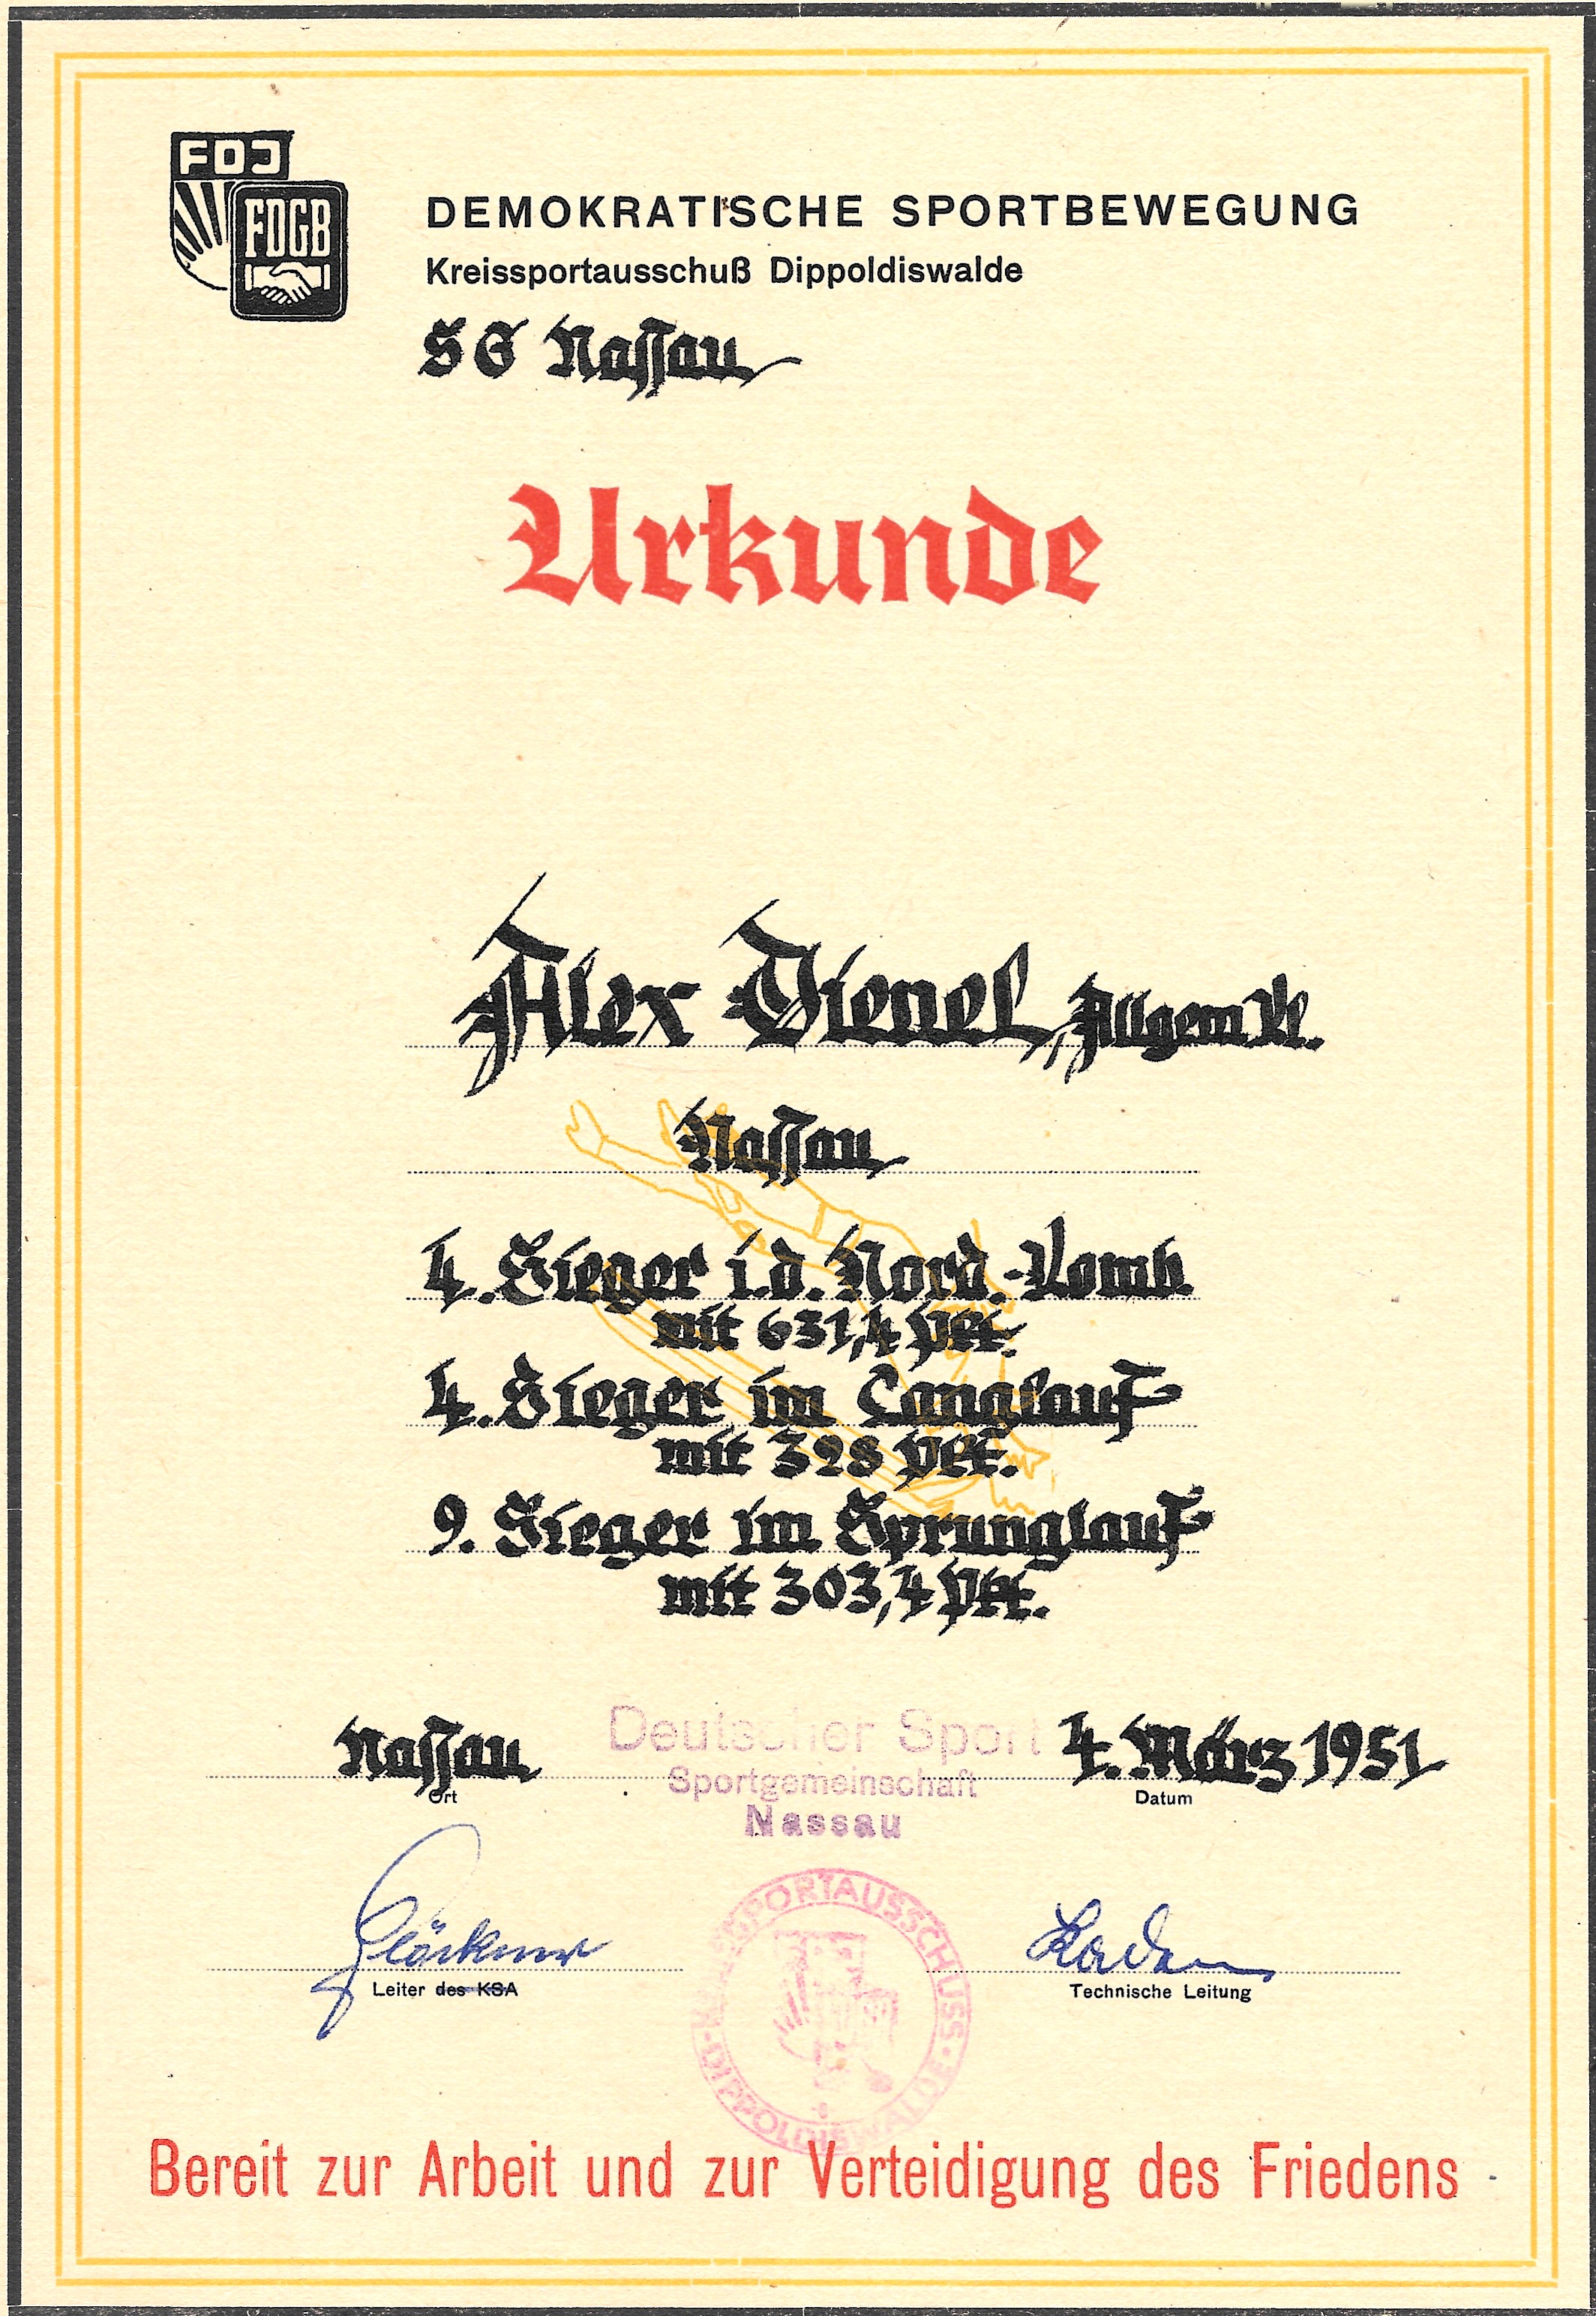 FDJ
FDGB
DEMOKRATISCHE SPORTBEWEGUNG
Kreissportausschuß Dippoldiswalde
SG Nassau
Urkunde
Alex Dienel, Allgem Kl.
Nassau
4. Sieger i.d. Nord.-Komb.
mit 631,4 Pkt.
4. Sieger im Langlauf
mit 328 Pkt.
9. Sieger im Sprunglauf
mit 303,4 Pkt.
Deutscher Sport
Nassau 4. März 1951
Sportgemeinschaft
Ort Datum
Nassau
Glöckner Kaden
Leiter des KSA Technische Leitung
KREISSPORTAUSSCHUSS · DIPPOLDISWALDE ·
Bereit zur Arbeit und zur Verteidigung des Friedens